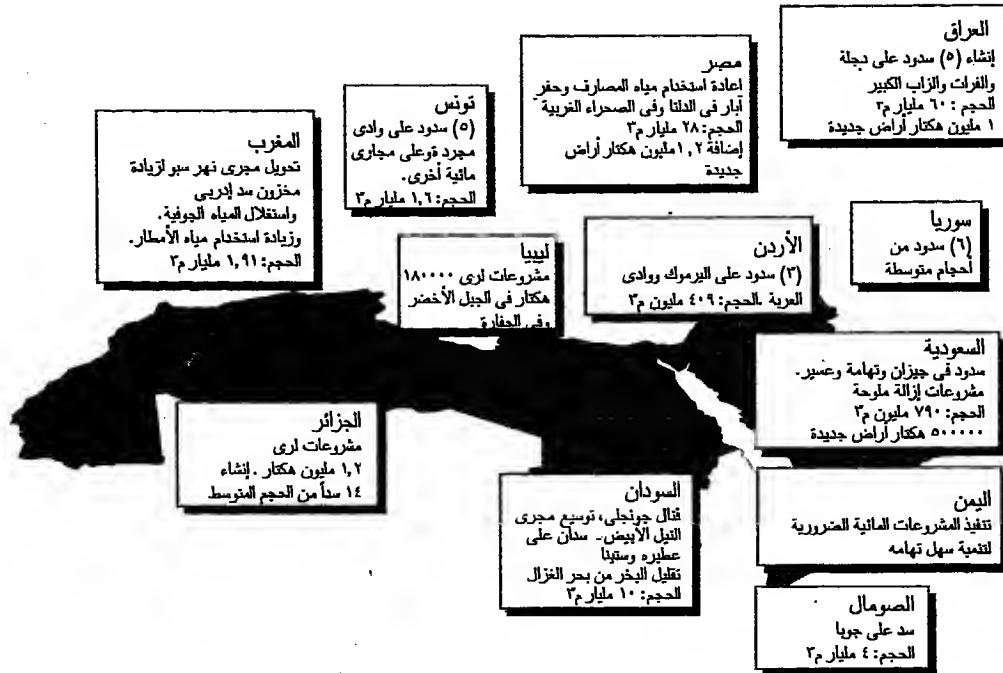 العراق
إنشاء (٥) سدود على دجلة
والفرات والزاب الكبير
الحجم : ٦٠ مليار م٣
١ مليون هكتار أراض جديدة
مصر
اعادة استخدام مياه المصارف وحفر
آبار فى الدلتا وفى الصحراء الغربية
الحجم: ٢٨ مليار م٣
إضافة ١,٢ مليون هكتار أراض
جديدة
تونس
(٥) سدود على وادى
مجرد ةوعلى مجاوى
مائية أخرى.
الحجم: ١,٦ مليار م٣
المغرب
تحويل مجرى نهر سبو لزيادة
مخزون سد إدربى
واستغلال المياه الجوفية.
وزيادة استخدام مياه الأمطار.
الحجم: ١,٩١ مليار م٣
سوريا
(٦) سدود من
أحجام متوسطة
الأردن
(٣) سدود على اليرموك ووادى
العربة .الحجم: ٤٠٩ مليون م٣
ليبيا
مشروعات لرى ١٨٠٠٠٠
هكتار فى الجبل الأخضر
وفى الجفارة
السعودية
سدود فى جيزان وتهامة وعسير.
مشروعات إزالة ملوحة
الحجم: ٧٩٠ مليون م٣
٥٠٠٠٠٠ هكتار أراض جديدة
الجزائر
مشروعات لرى
١,٢ مليون هكتار . إنشاء
١٤ سداً من الحجم المتوسط
السودان
قتال جونجلى، توسيع مجرى
النيل الأبيض. سدان على
عطبره وستيتا
تقليل البخر من بحر الغزال
الحجم: ١٠ مليار م٣
اليمن
تتفيذ المشروعات المائية الضرورية
لتنمية سهل تهامه
الصومال
سد على جوبا
الحجم: ٤ مليار م٣